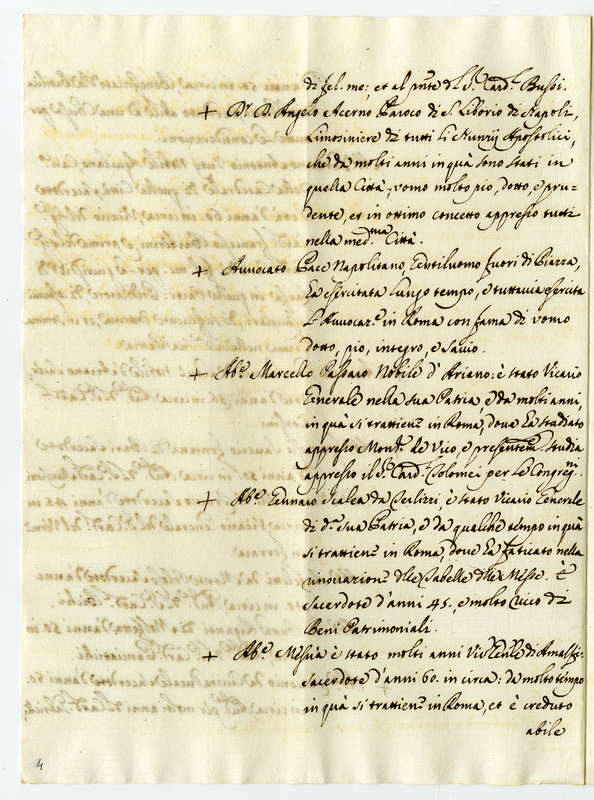 di fel. me: et al pnte Sr. Card.l Bussi.
+ Dr. D. Angelo Acerno Paroco di S. Liborio di Napoli,
Limosiniere di tutti li Nunzij Apostolici,
che da molti anni in quà sono stati in
quella Città; uomo molto pio, dotto, e pru-
dente, et in ottimo concetto appresso tutti
nella med.ma Città.
+ Avvocato Pace Napolitano, Gentiluomo fuori di Piazza,
ha esercitata lungo tempo, e tuttavia esercita
l'Avvocaz.e in Roma con fama di uomo
dotto, pio, integro, e savio.
+ Ab.e Marcello Passaro Nobile d'Ariano: è stato Vicario
Generale nella sua Patria, e da molti anni,
in quà si trattiene in Roma, dove ha studiato
appresso Mons.r de Vico, e presentem.e studia
appresso il Sr. Card.l Colomei per le Congreg.ni.
+ Ab.e Gennaro Scalea da Terlizzi, è stato Vicario Generale
di d.a sua Patria, e da qualche tempo in quà
si trattiene in Roma, dove ha faticato nella
rinovazione delle Tabelle delle Messe. È
Sacerdote d'anni 45, e molto ricco di
Beni Patrimoniali.
+ Ab.e Messia è stato molti anni Vic. Gnle di Amalfi:
Sacerdote d'anni 60. in circa: da molto tempo
in quà si trattiene in Roma, et è creduto
abile
4